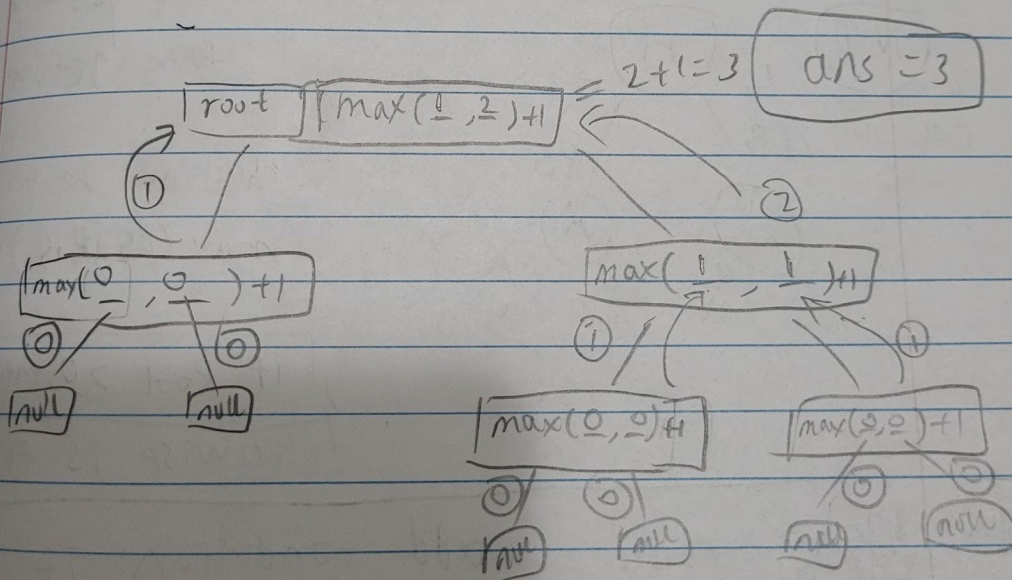 2+1=3 ans = 3
root max(1,2)+1
① ②
max(0,0)+1 max(1,1)+1
⓪ ⓪ ① ①
null null max(0,0)+1 max(0,0)+1
⓪ ⓪ ⓪ ⓪
null null null null